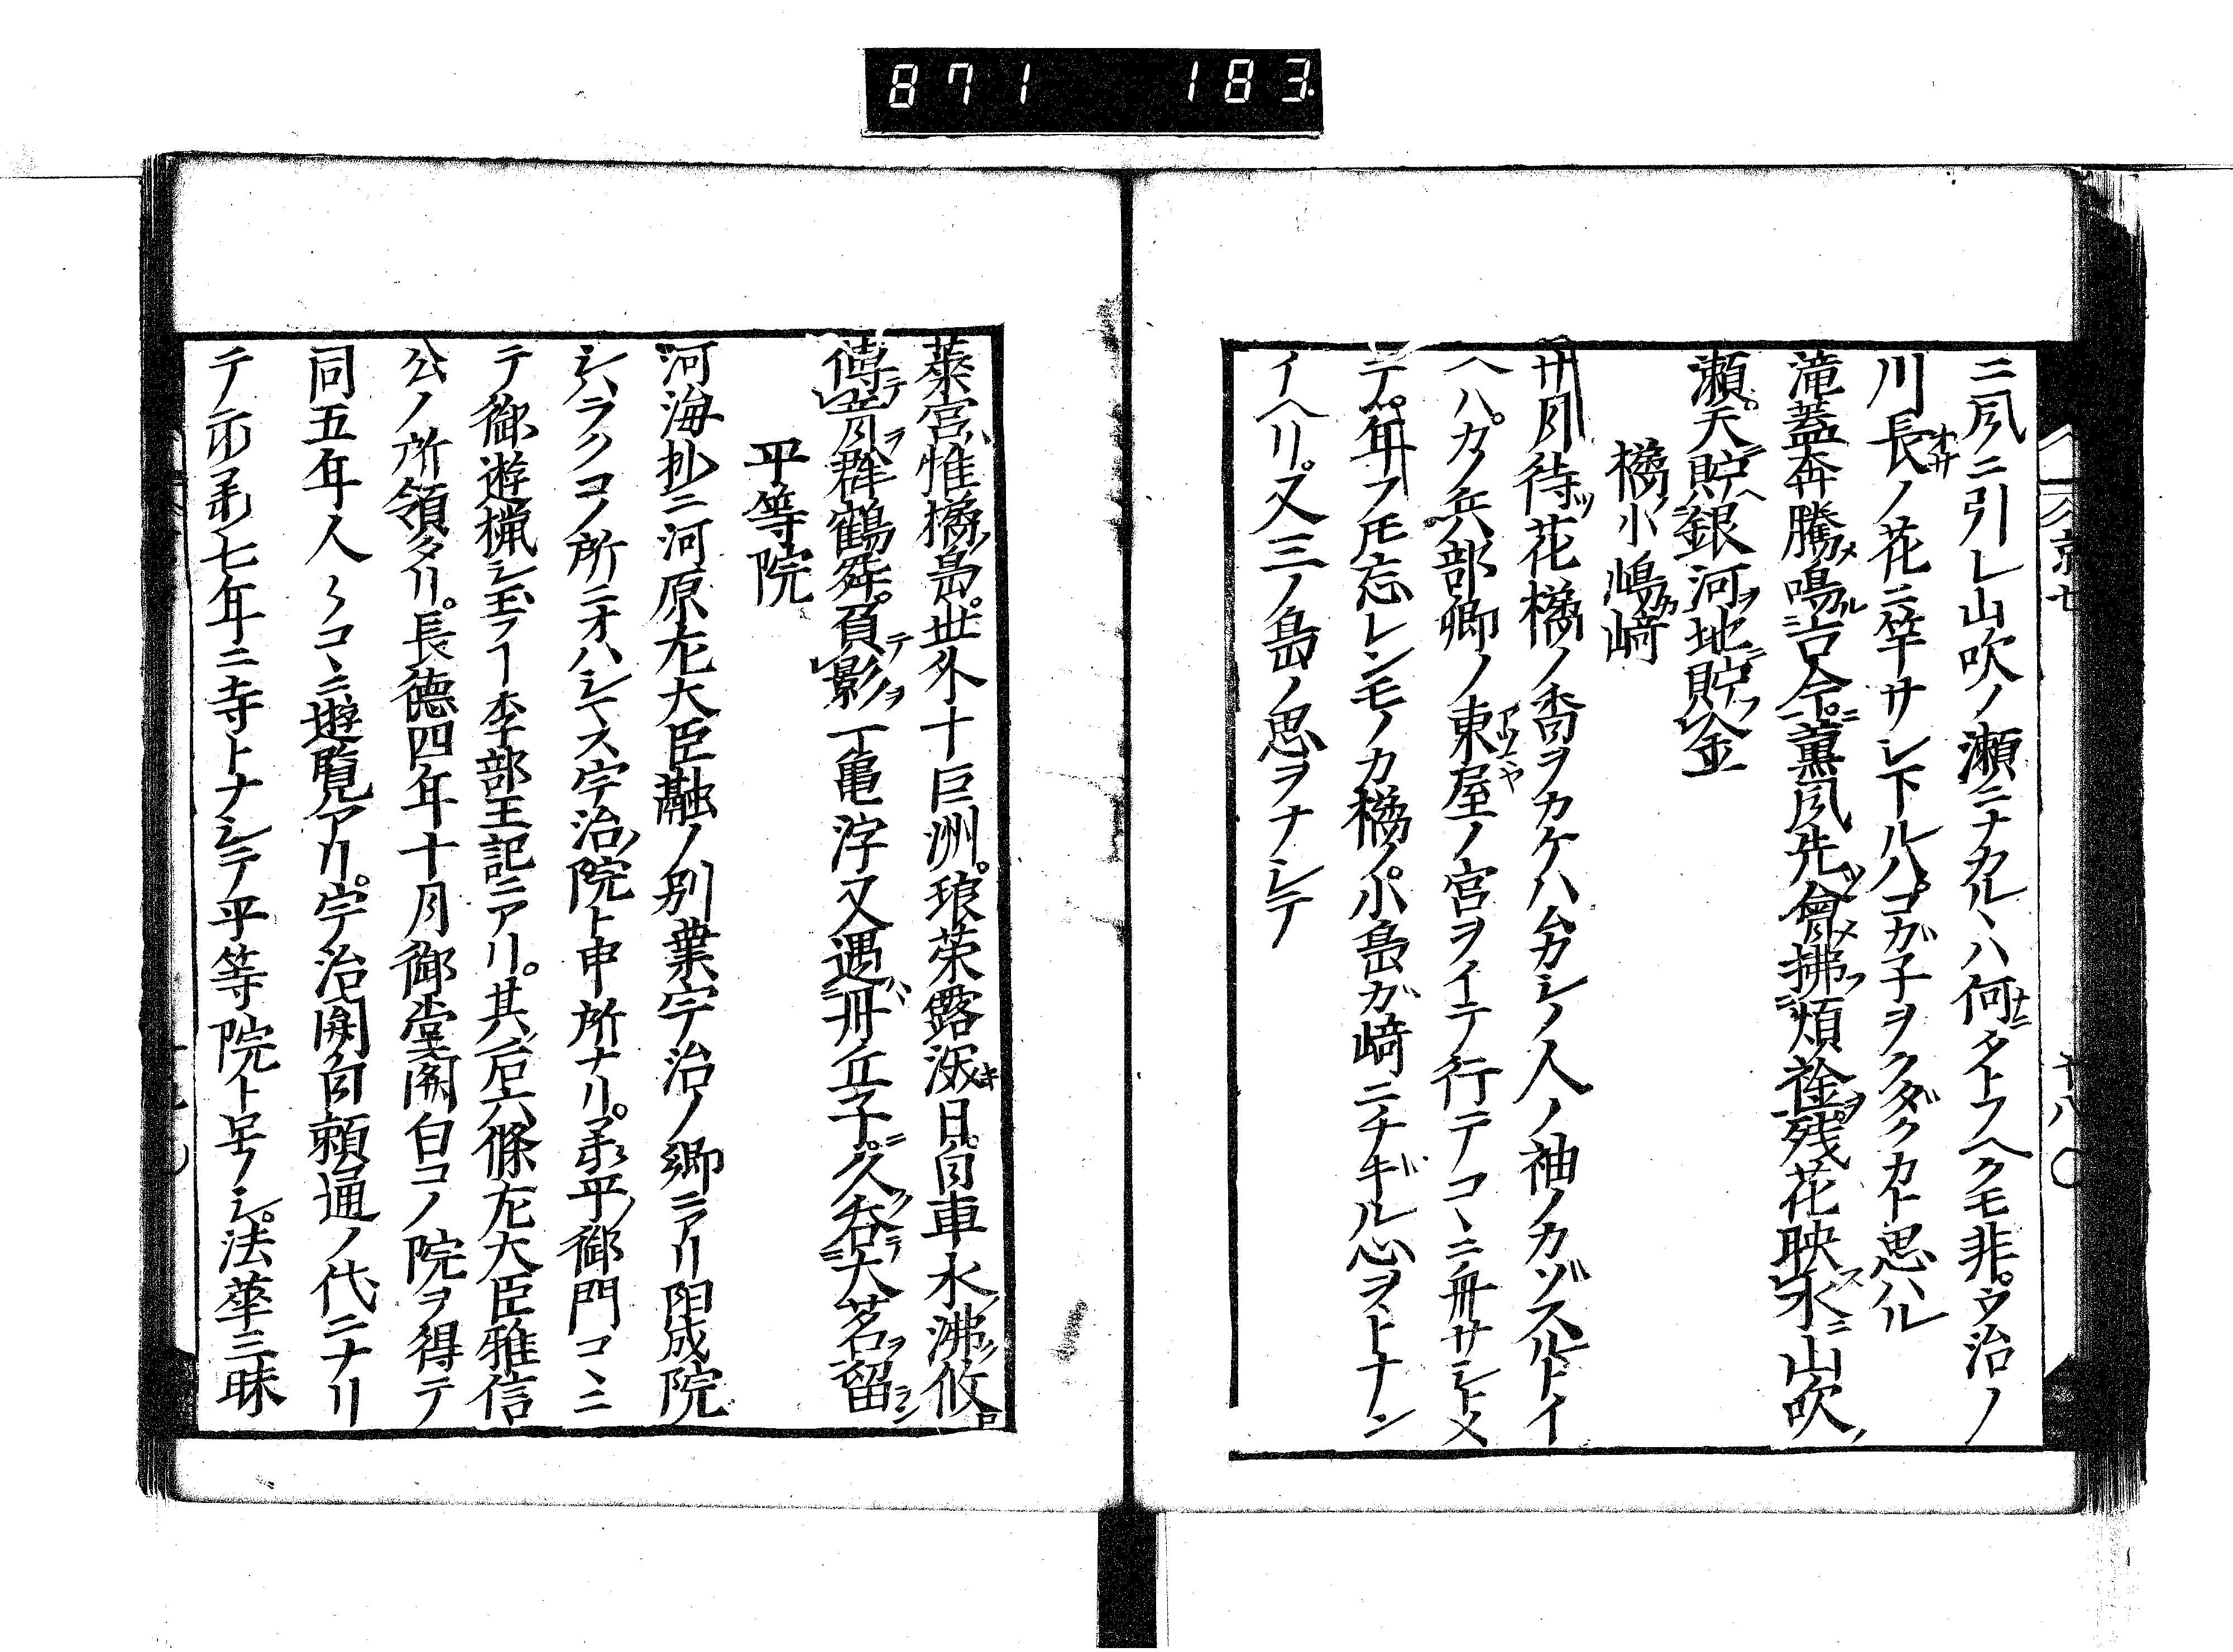 871 183
京七 十八
ニ風ニ引レ山吹ノ瀬ニナカルヽハ何タトフヘクモ非。ウ治ノ
川長ノ花ニ竿サレ下ルハコガ子ヲクダクカト思ハル
滝蓋奔騰鳴古今。薫風先會拂煩襟。残花映水山吹
瀬。天貯銀河地貯金
橘小嶋﨑
サ月待花橘ノ香ヲカケハムカシノ人ノ袖ノカゾスルトイ
ヘハ。カノ兵部卿ノ東屋ノ宮ヲイテ行テコヽニ舟サシトメ
テ。年フ𪜈忘レンモノカ橘ノ。小島ガ﨑ニチギル心ヲトナン
イヘリ。又三ノ島ノ思ヲナシテ
蘂宮惟橘島。世外十巨洲。琅栄露溆日。自車水沸攸
傳音群鶴舜。負影一亀浮又遇丹丘子。久呑大茗留
平等院
河海抄ニ河原左大臣融ノ別業宇治ノ郷ニアリ陽成院
シハラクコノ所ニオハシマス宇治院ト申所ナリ。承平御門コヽニ
テ御遊猟シ玉フヿ李部王記ニアリ。其后六條左大臣雅信
公ノ所領タリ。長徳四年十月御堂関白コノ院ヲ得テ
同五年人〻コヽニ遊覧アリ。宇治関白頼通ノ代ニナリ
テ永承七年ニ寺トナシテ平等院ト号ノシ。法華三昧